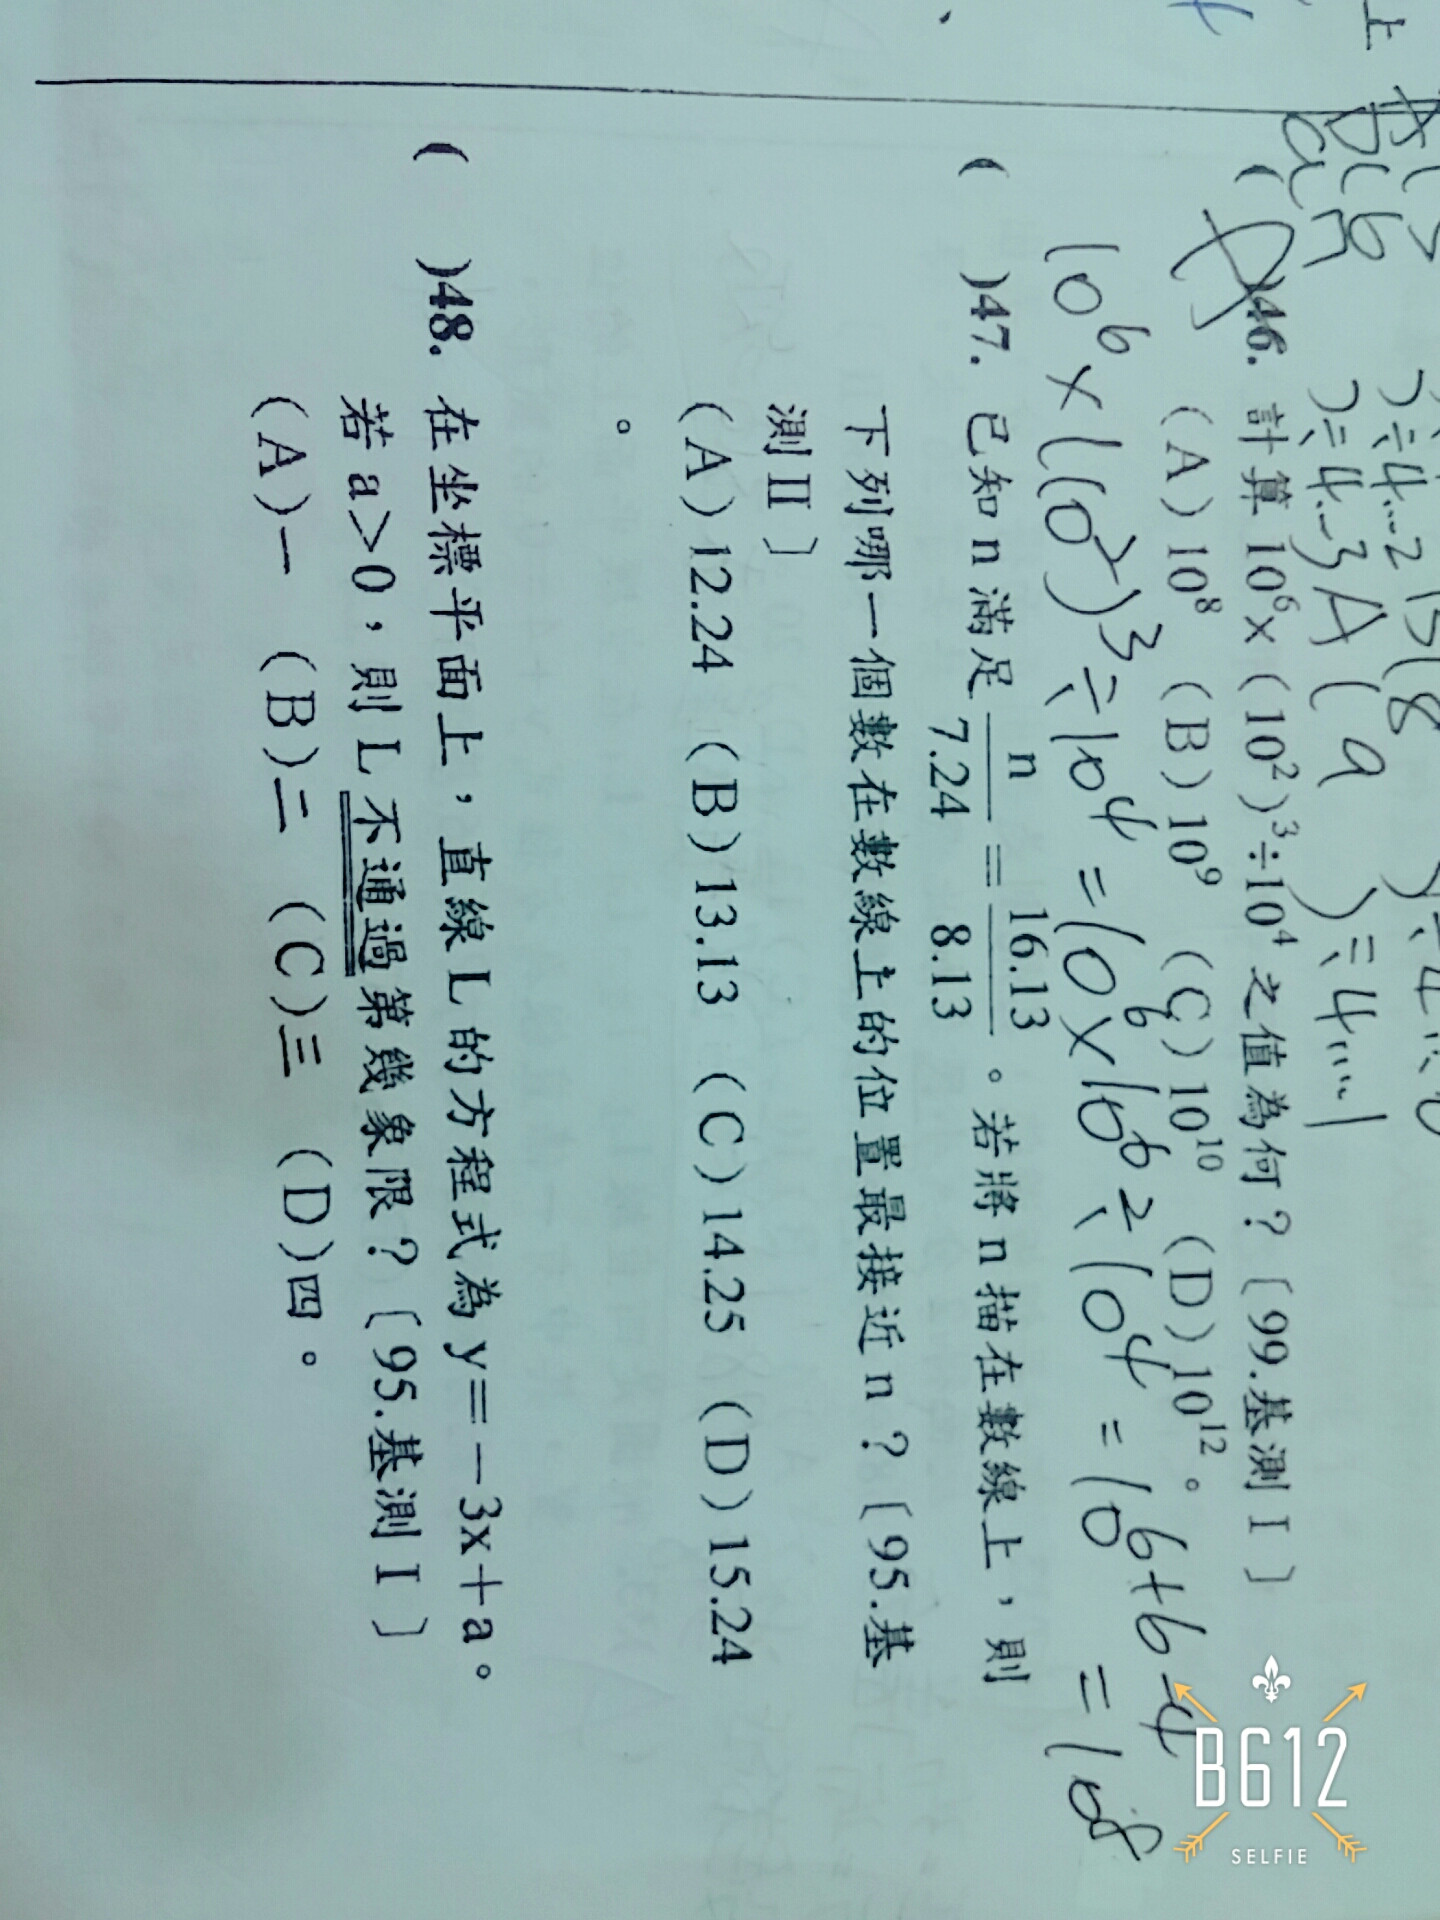 上
)46. 計算 10⁶×(10²)³÷10⁴ 之值為何？〔99.基測Ⅰ〕
(A)10⁸ (B)10⁹ (C)10¹⁰ (D)10¹²。
10⁶×(10²)³÷10⁴=10⁶×10⁶÷10⁴=10⁶⁺⁶⁻⁴=10⁸
( )47. 已知 n 滿足 n/7.24 = 16.13/8.13。若將 n 描在數線上，則
下列哪一個數在數線上的位置最接近 n？〔95.基
測Ⅱ〕
(A)12.24 (B)13.13 (C)14.25 (D)15.24
。
( )48. 在坐標平面上，直線 L 的方程式為 y=－3x＋a。
若 a>0，則 L 不通過第幾象限？〔95.基測Ⅰ〕
(A)一 (B)二 (C)三 (D)四。
B612
SELFIE